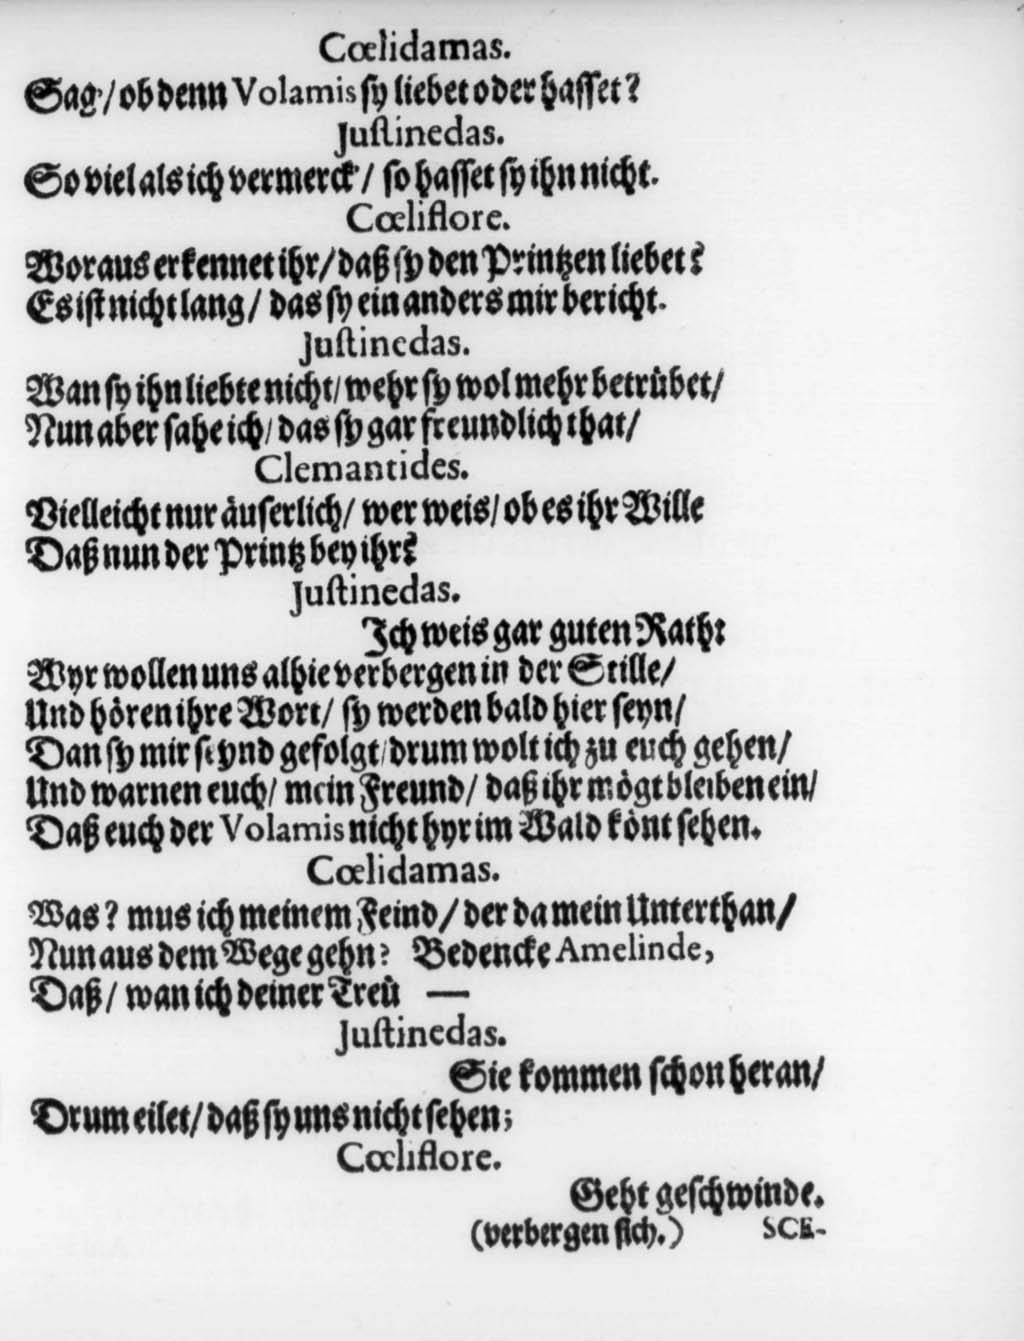 Cœlidamas.
Sag'/ ob denn Volamis sy liebet oder hasset?
Justinedas.
So viel als ich vermerck'/ so hasset sy ihn nicht.
Cœliflore.
Woraus erkennet ihr/ daß sy den Printzen liebet?
Es ist nicht lang/ das sy ein anders mir bericht.
Justinedas.
Wan sy ihn liebte nicht/ wehr sy wol mehr betrübet/
Nun aber sahe ich/ das sy gar freundlich that/
Clemantides.
Vielleicht nur äuserlich/ wer weis/ ob es ihr Wille
Daß nun der Printz bey ihr?
Justinedas.
Ich weis gar guten Rath:
Wyr wollen uns alhie verbergen in der Stille/
Und hören ihre Wort/ sy werden bald hier seyn/
Dan sy mir seynd gefolgt/ drum wolt ich zu euch gehen/
Und warnen euch/ mein Freund/ daß ihr mögt bleiben ein/
Daß euch der Volamis nicht hyr im Wald könt sehen.
Cœlidamas.
Was? mus ich meinem Feind/ der da mein Unterthan/
Nun aus dem Wege gehn? Bedencke Amelinde,
Daß/ wan ich deiner Treü —
Justinedas.
Sie kommen schon heran/
Drum eilet/ daß sy uns nicht sehen;
Cœliflore.
Geht geschwinde.
(verbergen sich.) SCE-